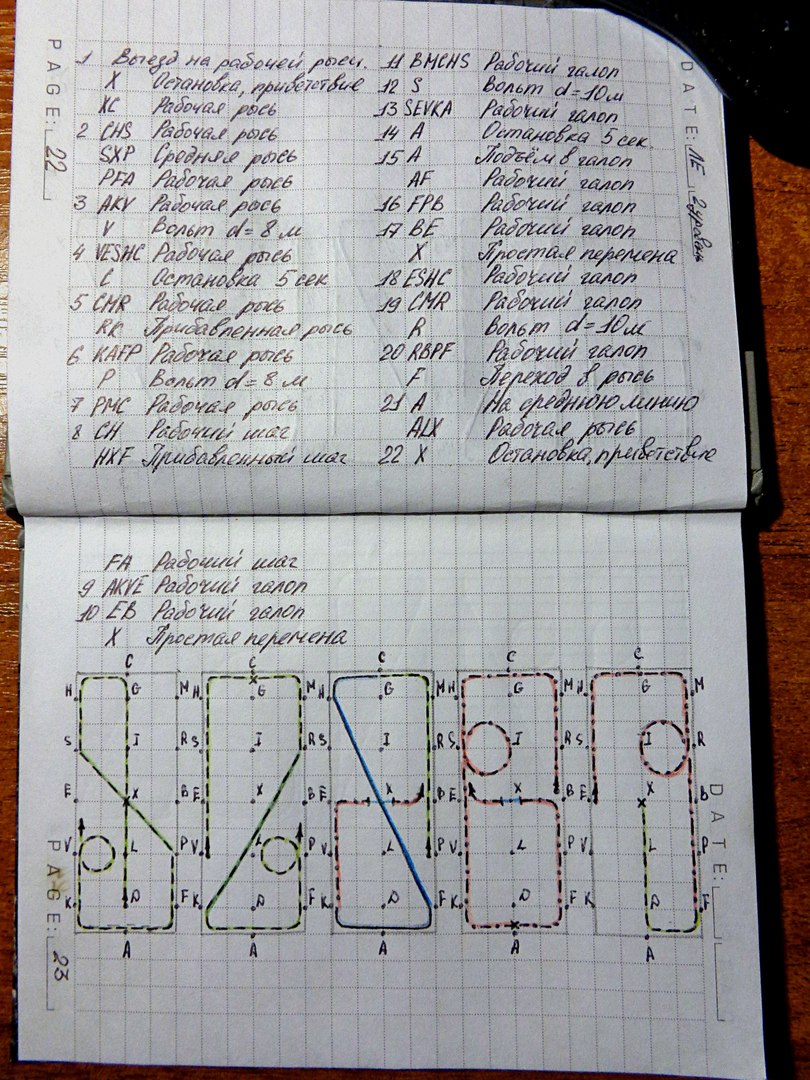 PAGE: 22
DATE: ЛЕ 2 уровень
1 Выезд на рабочей рыси.
X Остановка, приветствие
XC Рабочая рысь
2 CHS Рабочая рысь
SXP Средняя рысь
PFA Рабочая рысь
3 AKV Рабочая рысь
V Вольт d=8 м
4 VESHC Рабочая рысь
C Остановка 5 сек
5 CMR Рабочая рысь
RK Прибавленная рысь
6 KAFP Рабочая рысь
P Вольт d=8 м
7 PMC Рабочая рысь
8 CH Рабочий шаг
HXF Прибавленный шаг
11 BMCHS Рабочий галоп
12 S Вольт d=10м
13 SEVKA Рабочий галоп
14 A Остановка 5 сек.
15 A Подъём в галоп
AF Рабочий галоп
16 FPB Рабочий галоп
17 BE Рабочий галоп
X Простая перемена
18 ESHC Рабочий галоп
19 CMR Рабочий галоп
R Вольт d=10м
20 RBPF Рабочий галоп
F Переход в рысь
21 A На среднюю линию
ALX Рабочая рысь
22 X Остановка, приветствие
FA Рабочий шаг
9 AKVE Рабочий галоп
10 EB Рабочий галоп
X Простая перемена
C C C C C
H G M H G M H G M H G M H G M
S I R S I R S I R S I R S I R
E X B E X B E X B E X B E X B
V L P V L P V L P V L P V L P
K D F K D F K D F K D F K D F
A A A A A
PAGE: 23
DATE: